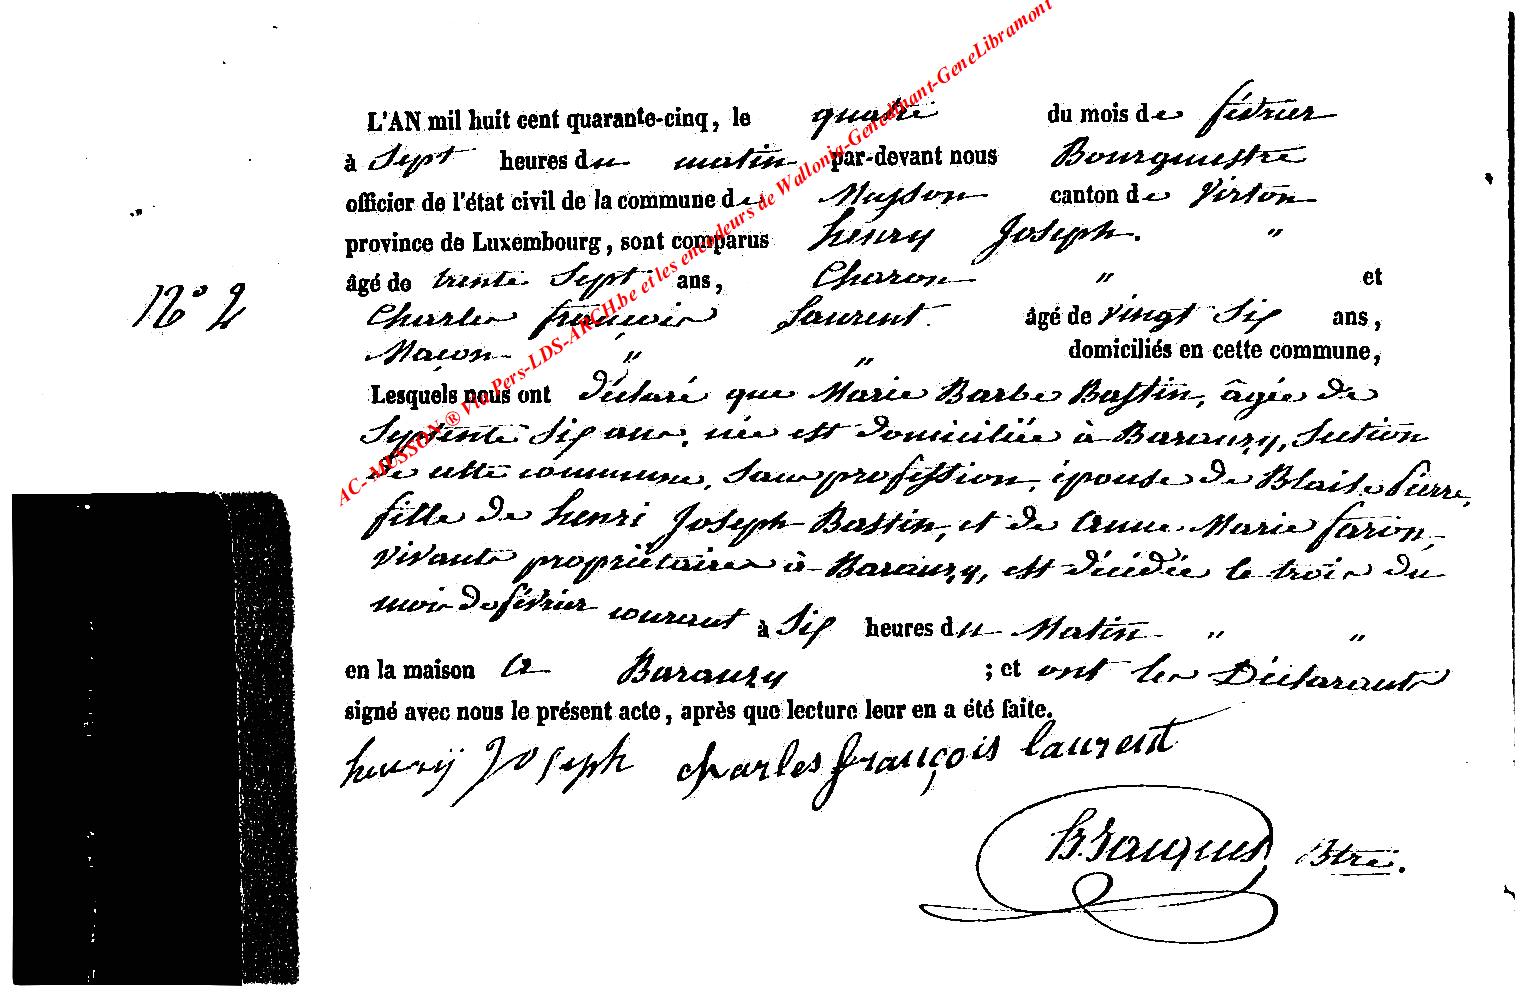 L'AN mil huit cent quarante-cinq, le quatre du mois de février
à Sept heures du matin par-devant nous Bourgmestre
officier de l'état civil de la commune de Musson canton de Virton
province de Luxembourg, sont comparus henry Joseph. "
âgé de trente Sept ans, Charon " et
N° 2
Charles françois Laurent. âgé de vingt Six ans,
Maçon " " domiciliés en cette commune,
Lesquels nous ont déclaré que Marie Barbe Bastin, âgée de
Septente Six ans, née et domiciliée à Baranzy, Section
de cette commune, Sans profession, épouse de Blaise Pierre,
fille de henri Joseph Bastin, et de Anne Marie faron,
vivants propriétaires à Baranzy, est décédée le trois du
mois de février courant à Six heures du Matin " "
en la maison à Baranzy ; et ont les Déclarants
signé avec nous le présent acte, après que lecture leur en a été faite.
henry Joseph charles françois laurent
Btre.
AC-MUSSON ® via Pers-LDS-ARCH.be et les encodeurs de Wallonia-Genedinant-GeneLibramont